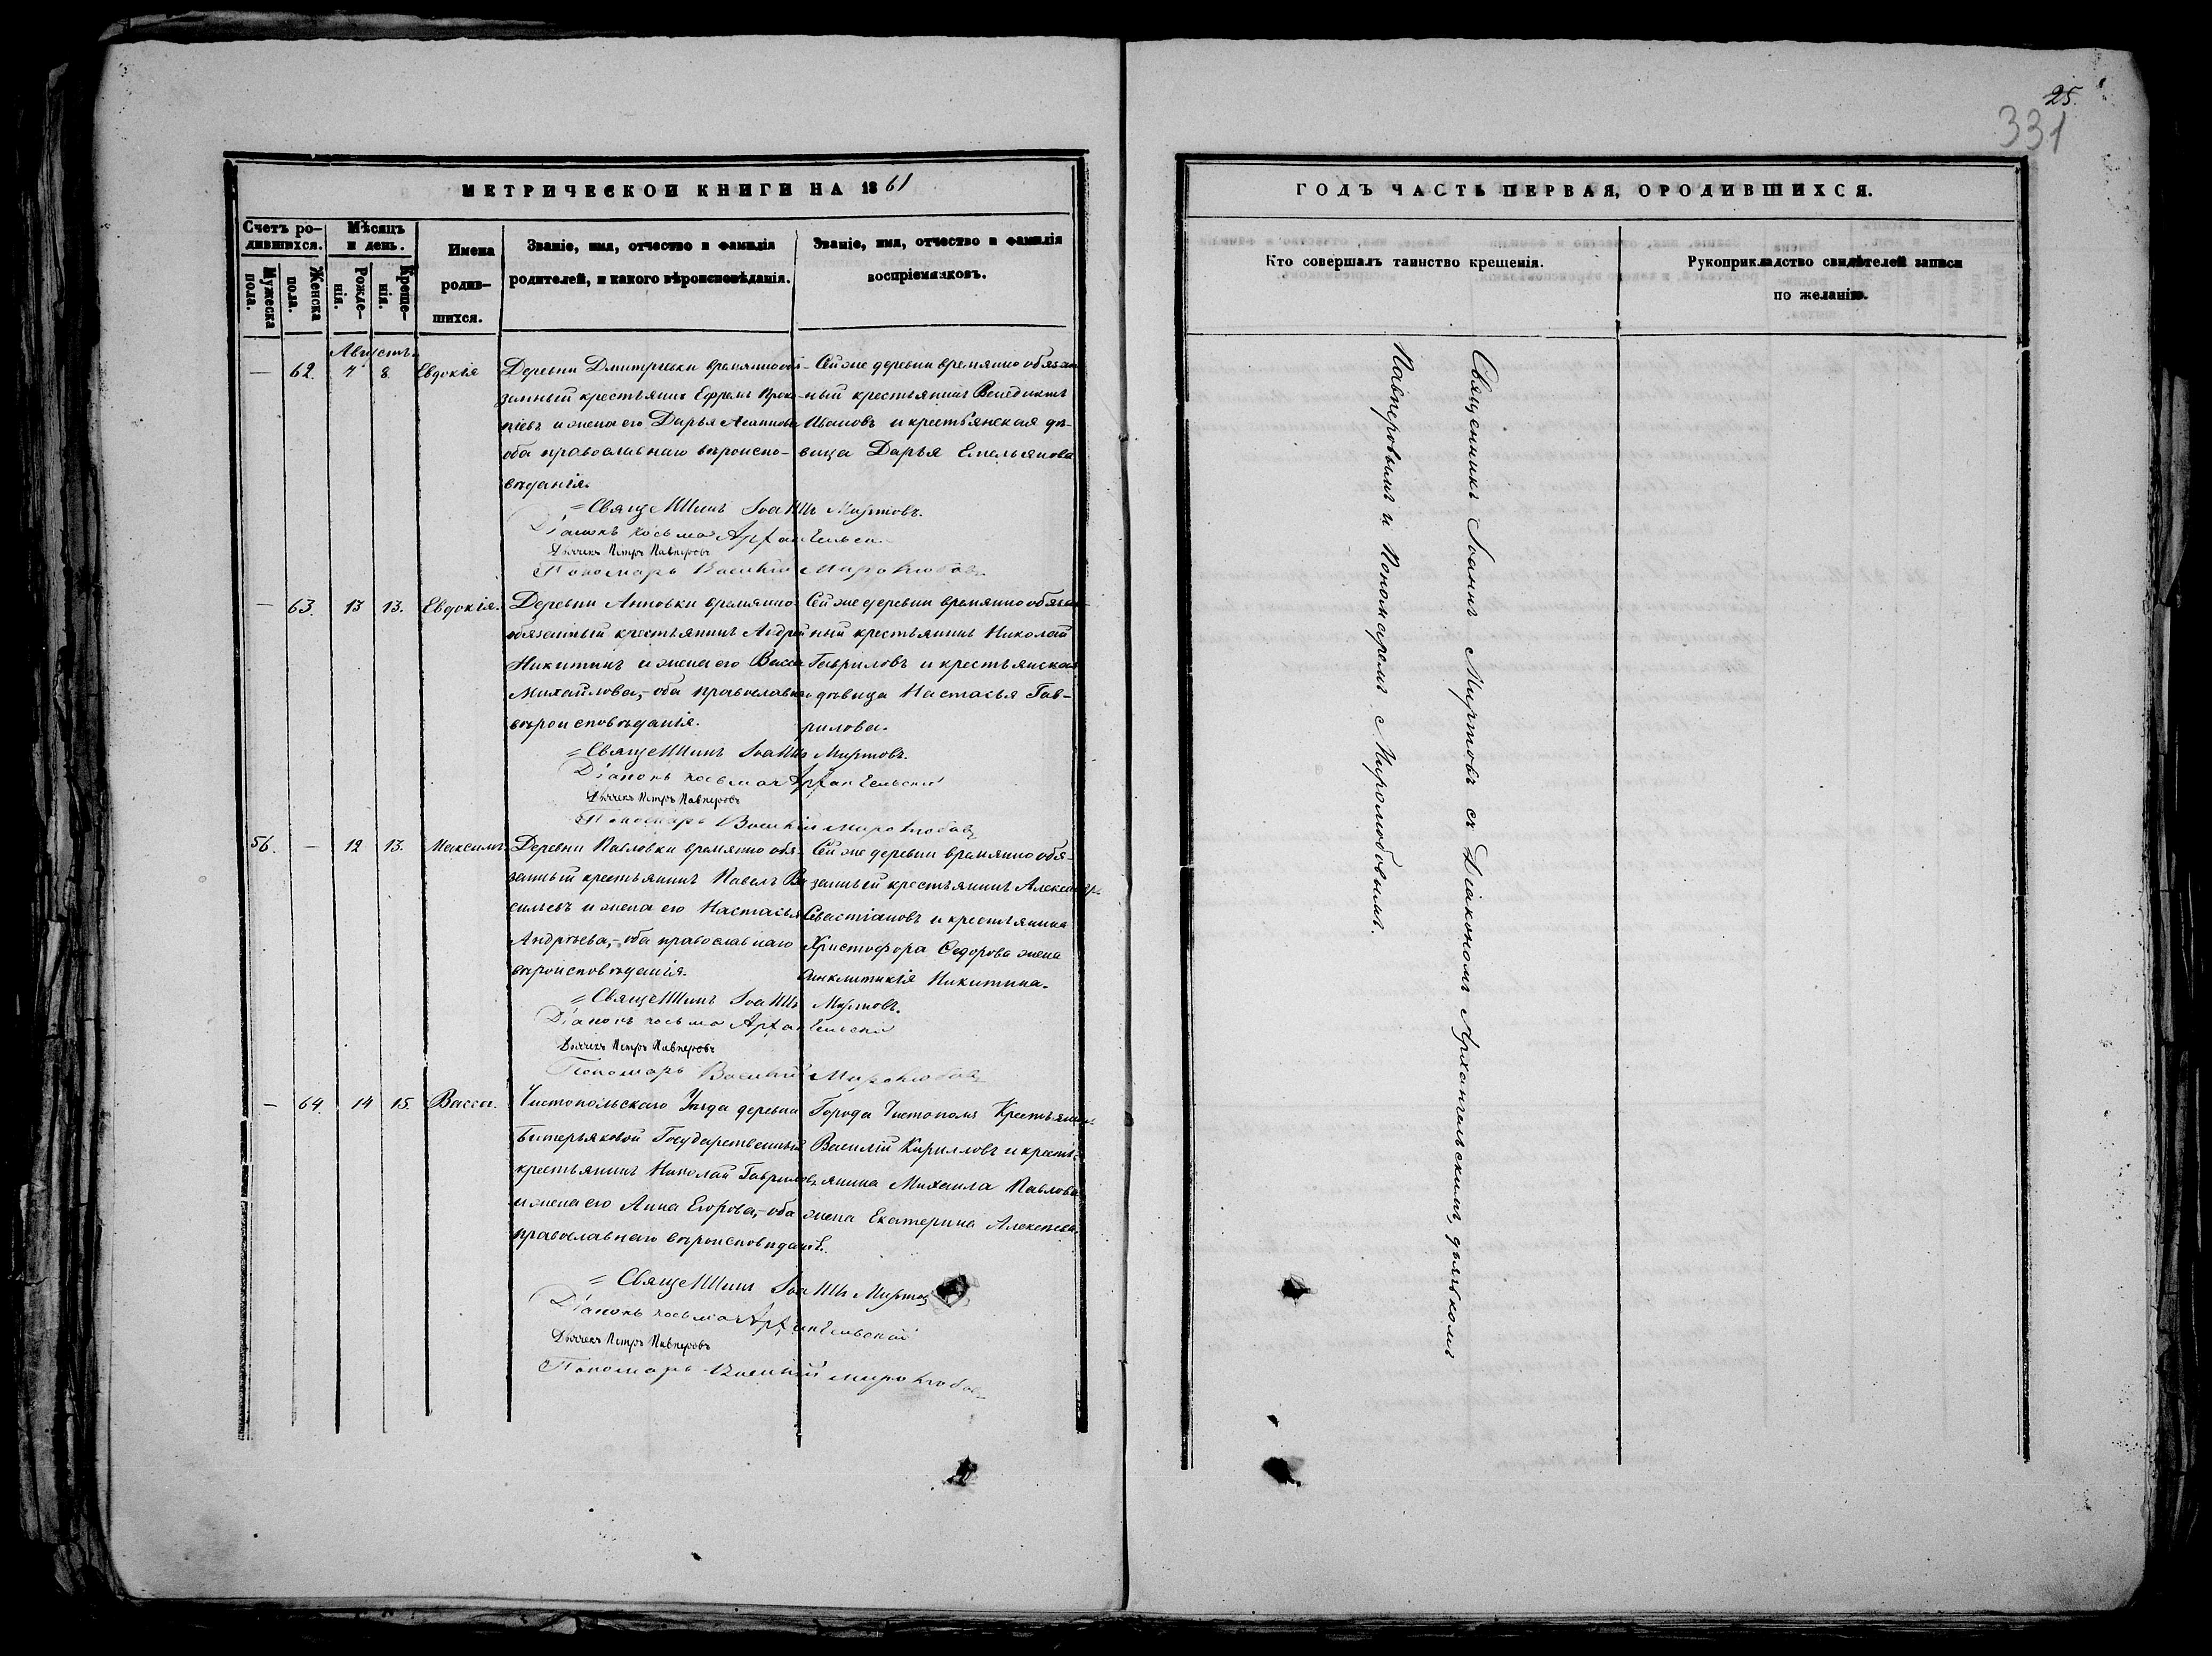 МЕТРИЧЕСКОЙ КНИГИ НА 1861
Счетъ родившихся.
Мѣсяцъ и день.
Имена родившихся.
Званіе, имя, отчество и фамилія родителей, и какого вѣроисповѣданія.
Званіе, имя, отчество и фамилія воспріемниковъ.
Мужеска пола.
Женска пола.
Рожденія.
Крещенія.
Августъ.
— 62. 7 8. Евдокія
Деревни Дмитріевки временнообя-
занный крестьянинъ Ефремъ Прок-
піевъ и жена его Дарья
оба православнаго вѣроиспо-
вѣданія.
Сей же деревни временно обязан
ный крестьянинъ Венедиктъ
Ивановъ и крестьянская дѣ-
вица Дарья Емельянова
Священникъ Іоаннъ Миртовъ.
Діаконъ Косьма Архангельскій
Дьячекъ Петръ Павперовъ
Пономарь Василій Миролюбовъ
— 63. 13 13. Евдокія.
Деревни Анновки временно
обязанный крестьянинъ Андрей
Никитинъ и жена его Васса
Михайлова,- оба православнаго
вѣроисповѣданія.
Сей же деревни временно обязан-
ный крестьянинъ Николай
Гавриловъ и крестьянская
дѣвица Настасья Гав-
рилова.
Священникъ Іоаннъ Миртовъ.
Діаконъ Косьма Архангельскій
Дьячекъ Петръ Павперовъ
Пономарь Василій Миролюбовъ
56. — 12 13. Максимъ.
Деревни Павловки временно обя-
занный крестьянинъ Павелъ Ва
сильевъ и жена его Настасья
Андрѣева,- оба православнаго
вѣроисповѣданія.
Сей же деревни временно обя-
занный крестьянинъ Александръ
Севастіановъ и крестьянина
Христофора Ѳедорова жена
Синклитикія Никитина.
Священникъ Іоаннъ Миртовъ.
Діаконъ Косьма Архангельскій
Дьячекъ Петръ Павперовъ
Пономарь Василій Миролюбовъ
— 64. 14 15. Васса.
Чистопольскаго Уѣзда деревни
Бутерьяковой Государственный
крестьянинъ Николай Гавриловъ
и жена его Анна Егорова,- оба
православнаго вѣроисповѣданія.
Города Чистополя Крестьянинъ
Василій Кирилловъ и кресть-
янина Михаила Павлова
жена Екатерина Алексѣева.
Священникъ Іоаннъ Миртовъ
Діаконъ Косьма Архангельскій
Дьячекъ Петръ Павперовъ
Пономарь Василій Миролюбовъ
25.
331
ГОДЪ ЧАСТЬ ПЕРВАЯ, ОРОДИВШИХСЯ.
Кто совершалъ таинство крещенія.
Рукоприкладство свидѣтелей записи
по желанію.
Священникъ Іоаннъ Миртовъ съ Діакономъ Архангельскимъ, дьячкомъ
Павперовымъ и Пономаремъ Миролюбовымъ.